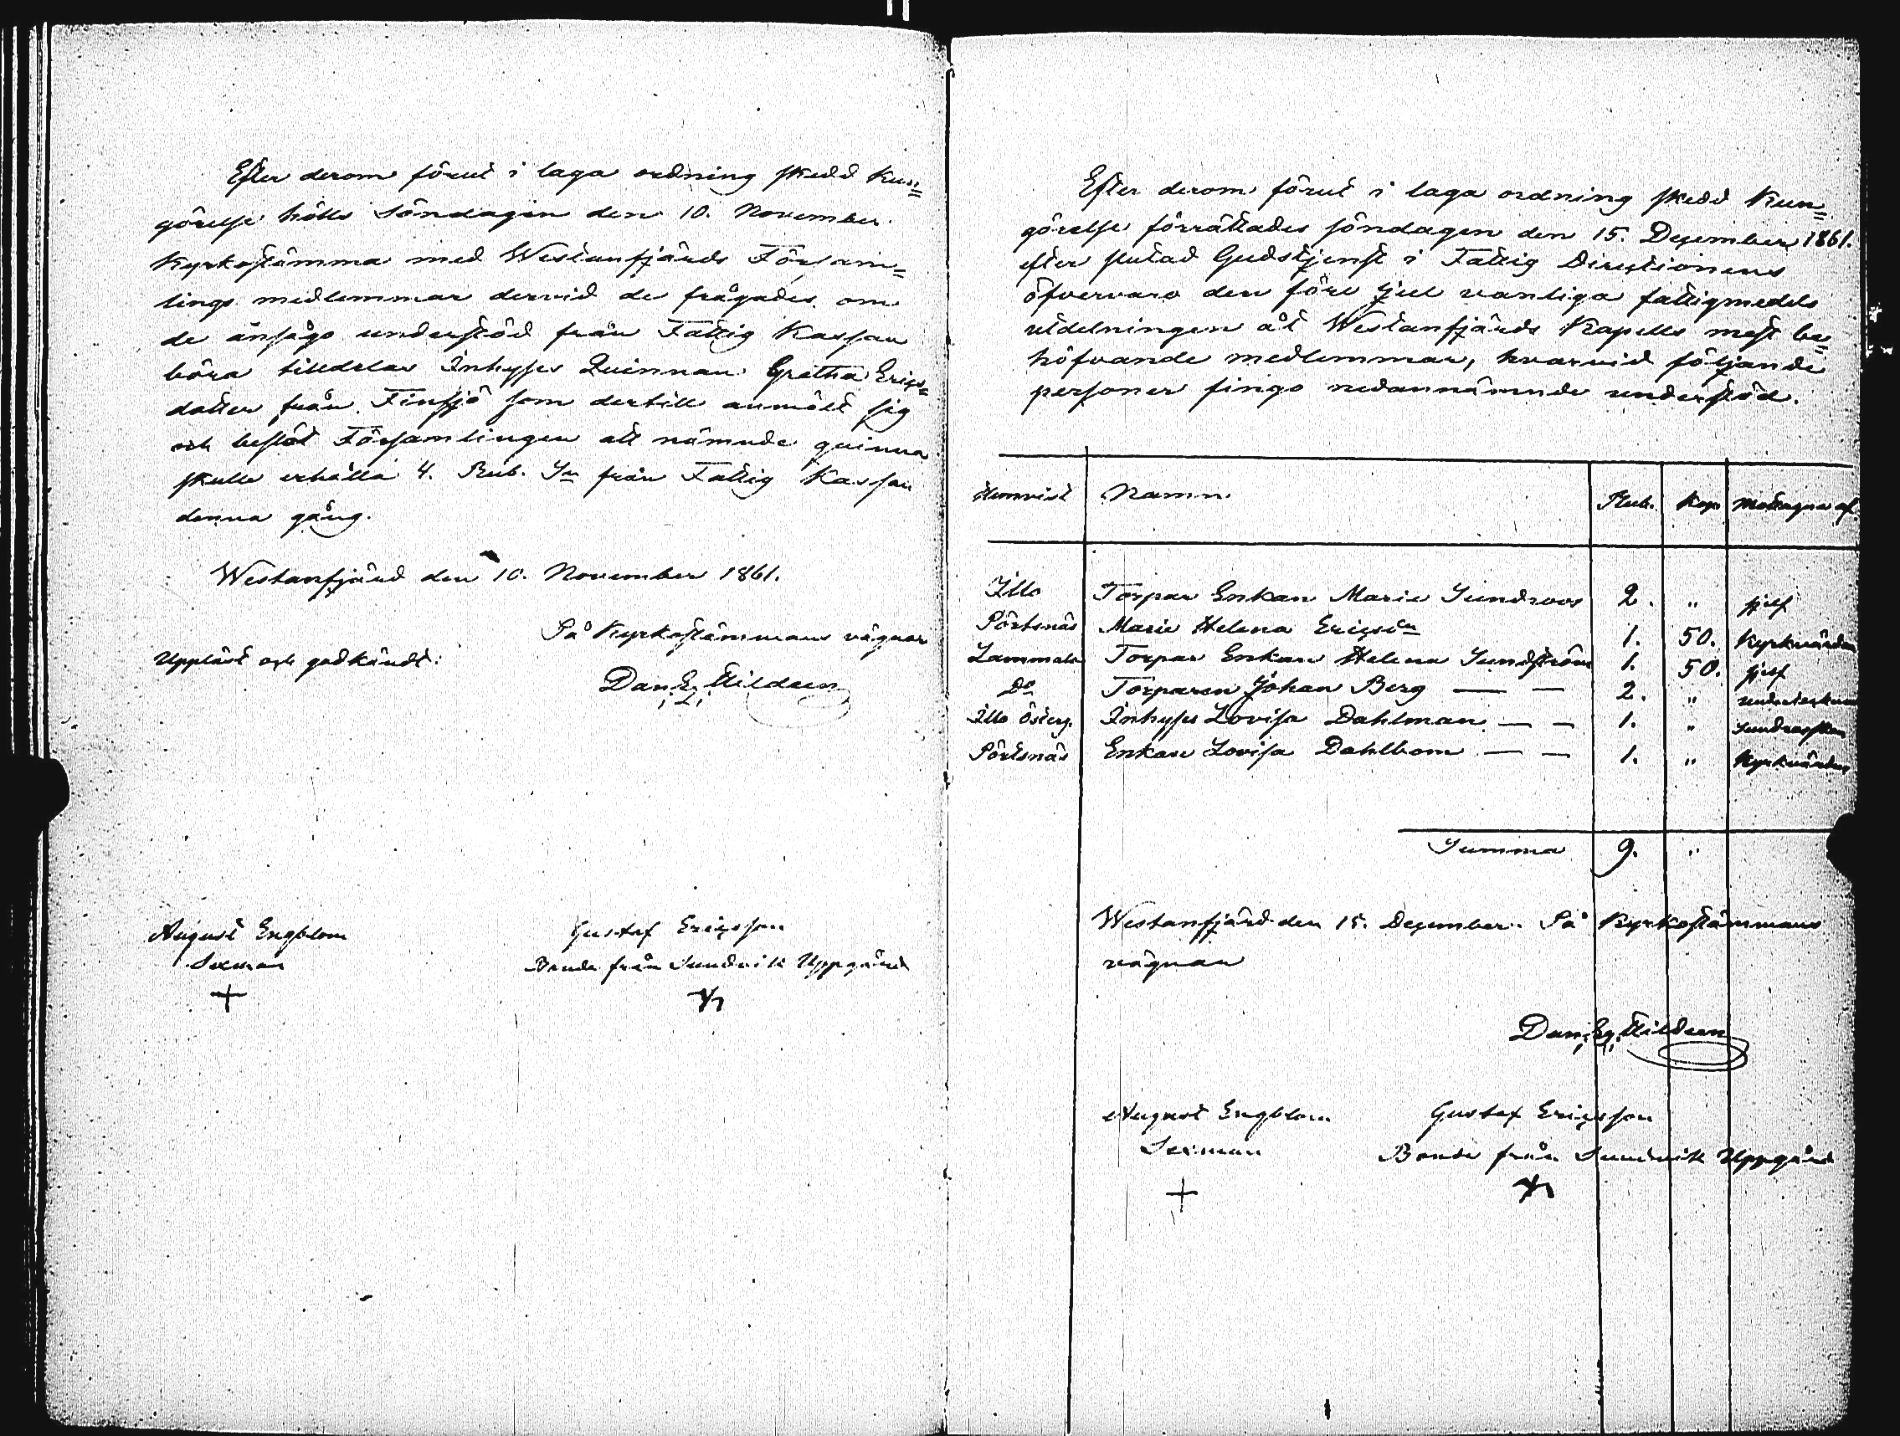 Efter derom förut i laga ordning skedd Kun=
görelse hölls Söndagen den 10. November
Kyrkostämma med Westanfjärds Försam=
lings medlemmar dervid de frågades om
de ansågo understöd från Fattig Kassan
böra tilldelas Inhyses Quinnan Gretha Erics=
dotter från Finsjö som dertill anmält sig
och beslöt Församlingen att nämnde quinna
skulle erhålla 4. Rub. Sr från Fattig Kassan
denna gång.
Westanfjärd den 10. November 1861.
På Kyrkostämmans vägnar
Uppläst och godkändt:
Dan. Eg.
August Engblom
Sexman
Gustaf Ericsson
Bonde från Sundvik Uppgård
Efter derom förut i laga ordning skedd Kun=
görelse förrättades söndagen den 15. December 1861.
efter slutad Gudstjenst i Fattig Directionens
öfvervaro den före jul vanliga fattigmedels
utdelningen åt Westanfjärds Kapells mest be=
höfvande medlemmar, hvarvid följande
personer fingo nedannämnde understöd.
Hemvist Namn. Rub. Kop. Mottagne af.
Illo Torpar Enkan Maria Sundroos 2. " sjelf
Pörtsnäs Maria Helena Ericsdr 1. 50. Kyrkvärden
Lammala Torpar Enkan Helena Sundström 1. 50. sjelf
Do Torparen Johan Berg — — 2. "
Illo Österg. Inhyses Lovisa Dahlman — — 1. "
Pörtsnäs Enkan Lovisa Dahlbom — — 1. " Kyrkvärden
Summa 9. "
Westanfjärd den 15. December. På Kyrkostämmans
vägnar
Dan. Eg.
August Engblom Gustaf Ericsson
Sexman Bonde från Sundvik Uppgård